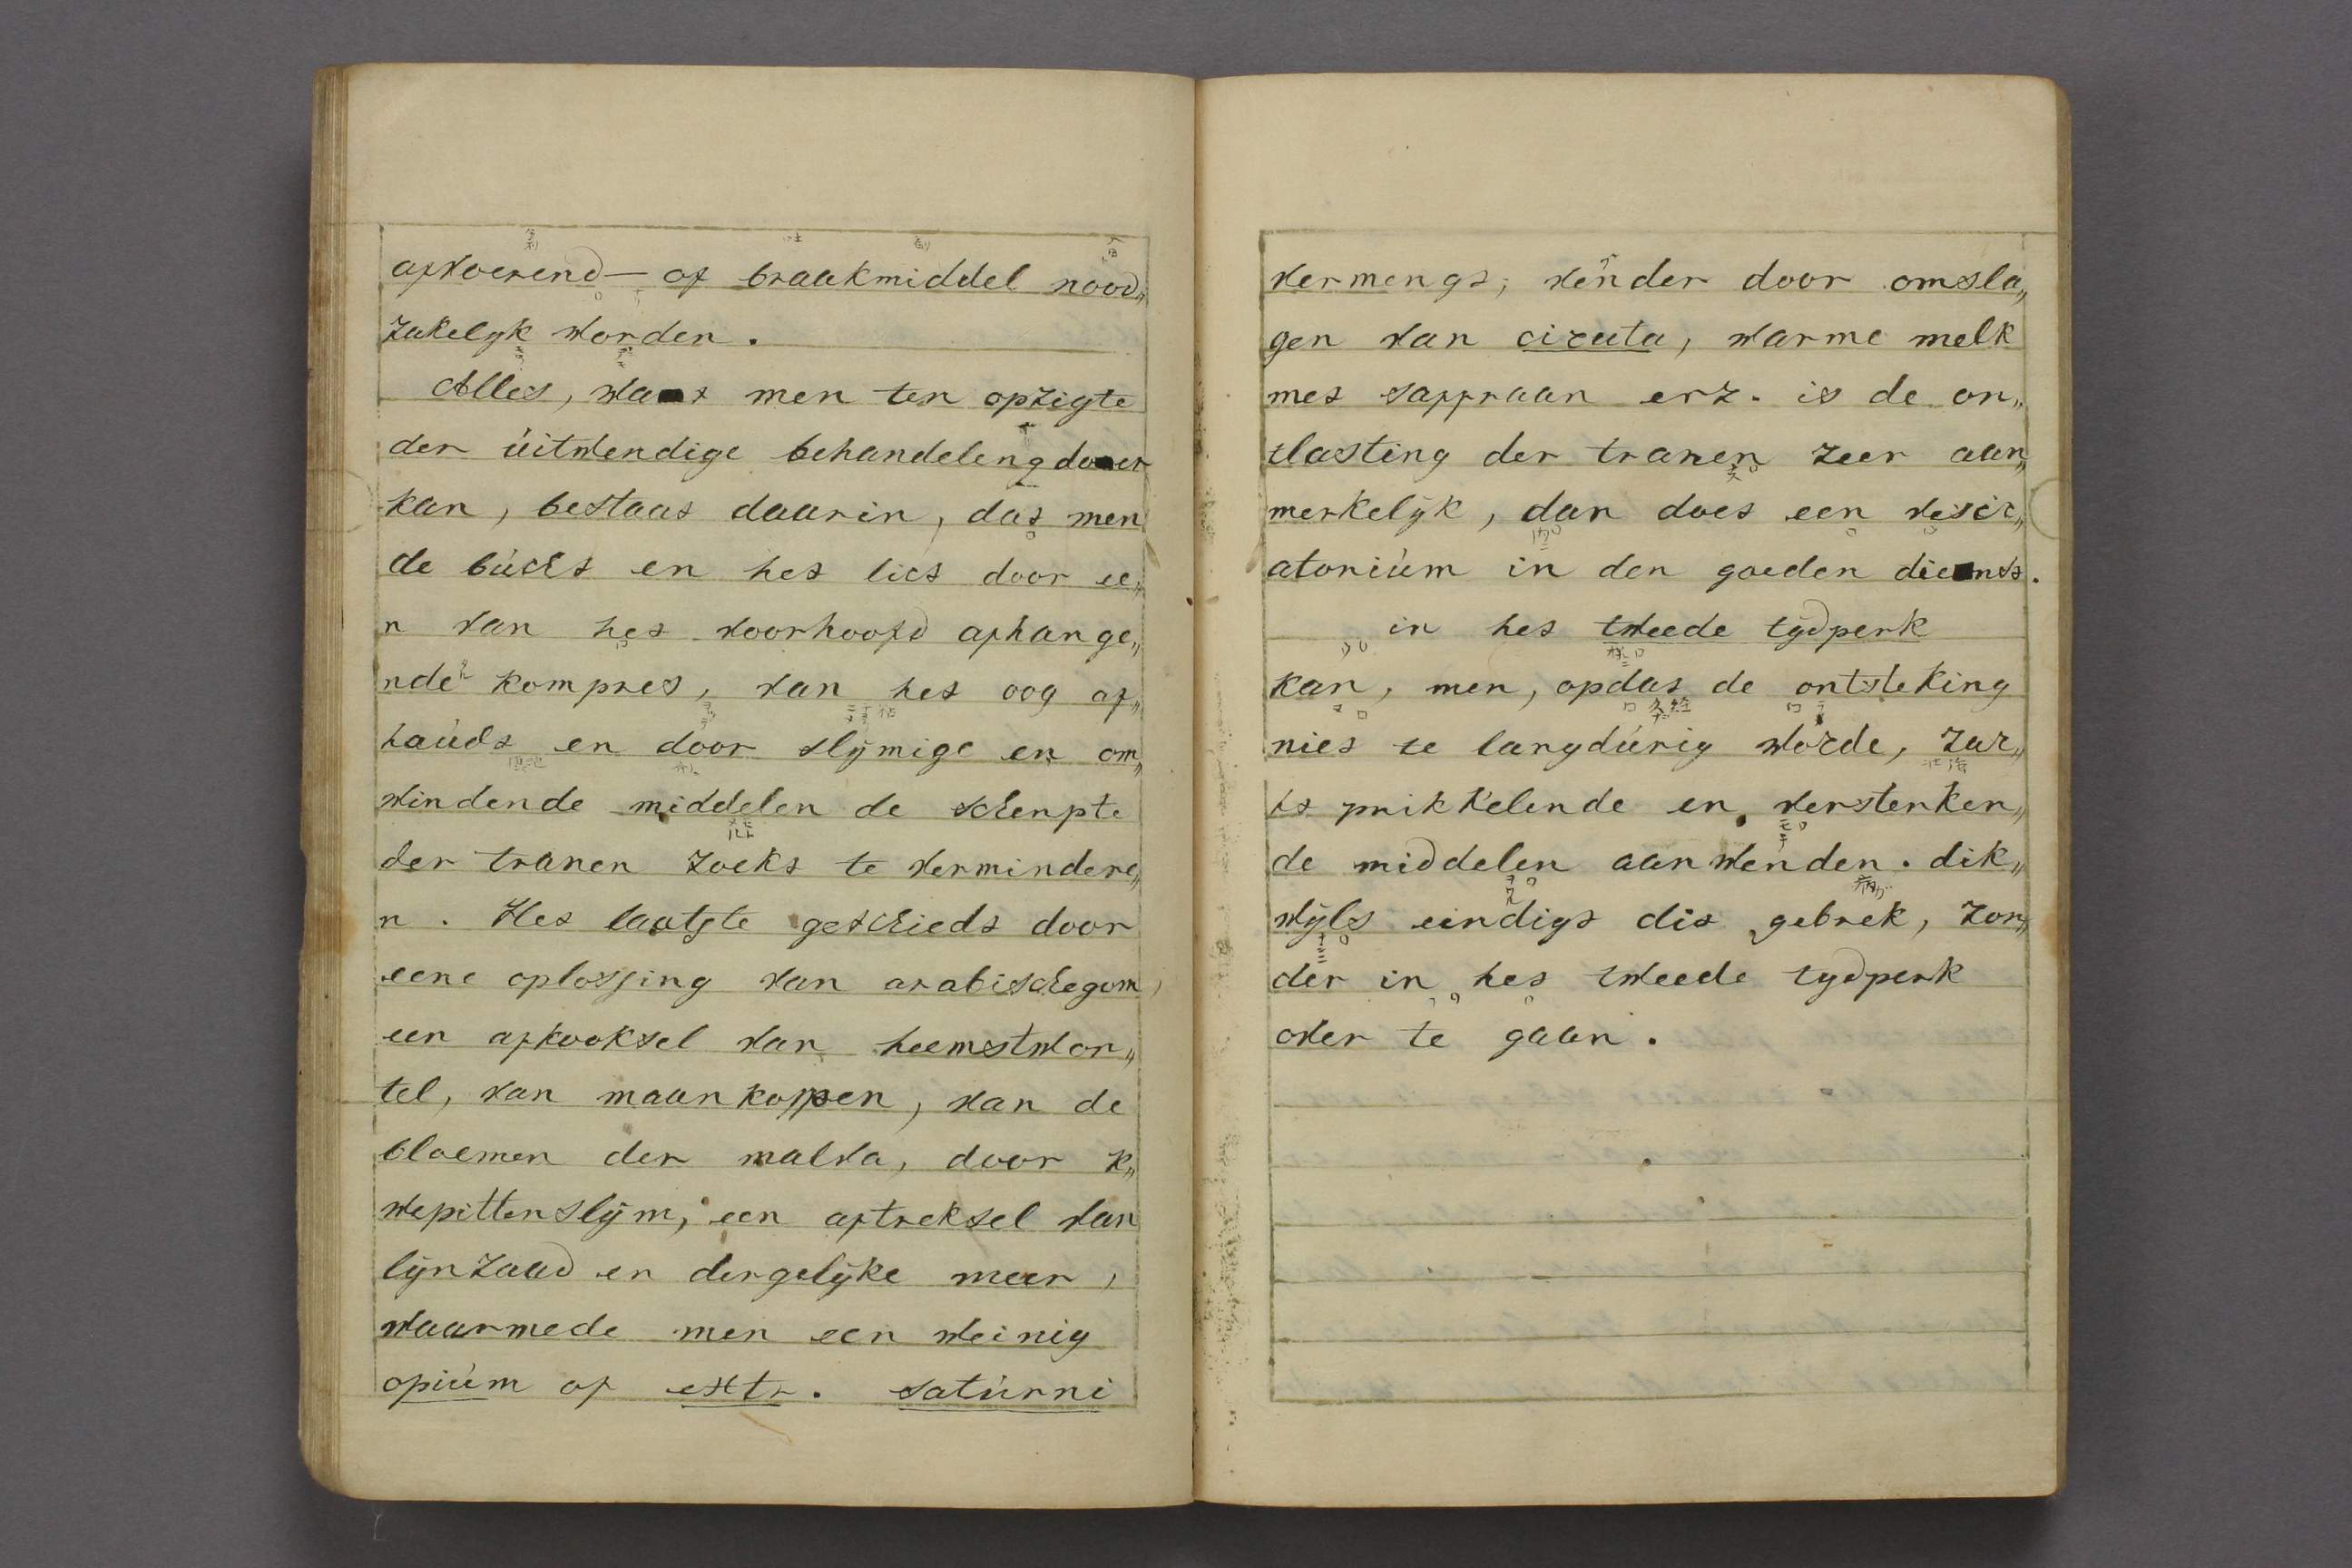 afvoerend— of braakmiddel nood„
zakelyk worden.
Alles, wat men ten opzigte
der úitwendige behandeleng doen
kan, bestaat daarin, dat men
de lúcht en het lict door ee„
n van het voorhoofd afhange„
nde kompres, van het oog af„
haúdt en door slijmige en om„
windende middelen de scherpte
der tranen zoekt te vermindere„
n. Het laatste geschiedt door
eene oplossing van arabischegom,
een afkooksel van heemstwor„
tel, van maankoppen, van de
bloemen der malva, door k„
wepittenslijm, een aftreksel van
lijnzaad en dergelijke meer,
waarmede men een weinig
opiúm of extr. satúrni
vermengt; vênder door omsla„
gen van cicuta, warme melk
met saffraan enz. is de on„
tlasting der tranen zeer aan„
merkelijk, dan doet een vesic„
atoriúm in den goeden dienst.
in het tweede tijdperk
kan, men, opdat de ontsteking
niet te langdúrig worde, zac„
ht prikkelende en versterken„
de middelen aanwenden. dik„
wijls eindigt dit gebrek, zon„
der in het tweede tydperk
over te gaan.